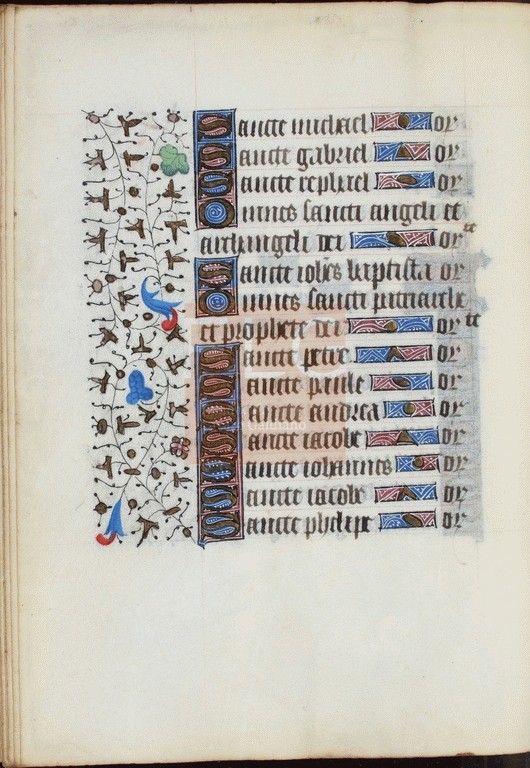 Sancte michael or
Sancte gabriel or
Sancte rephael or
Omnes sancti angeli et
archangeli dei or te
Sancte iohes baptista or
Omnes sancti patriarche
et prophete dei or te
Sancte petre or
Sancte paule or
Sancte andrea or
Sancte iacobe or
Sancte iohannes or
Sancte iacobe or
Sancte phelipe or